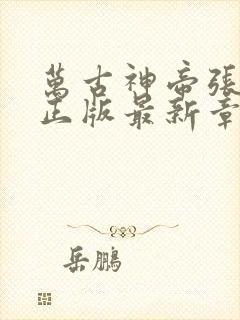 萬古神帝張
正版最新章
岳鵬